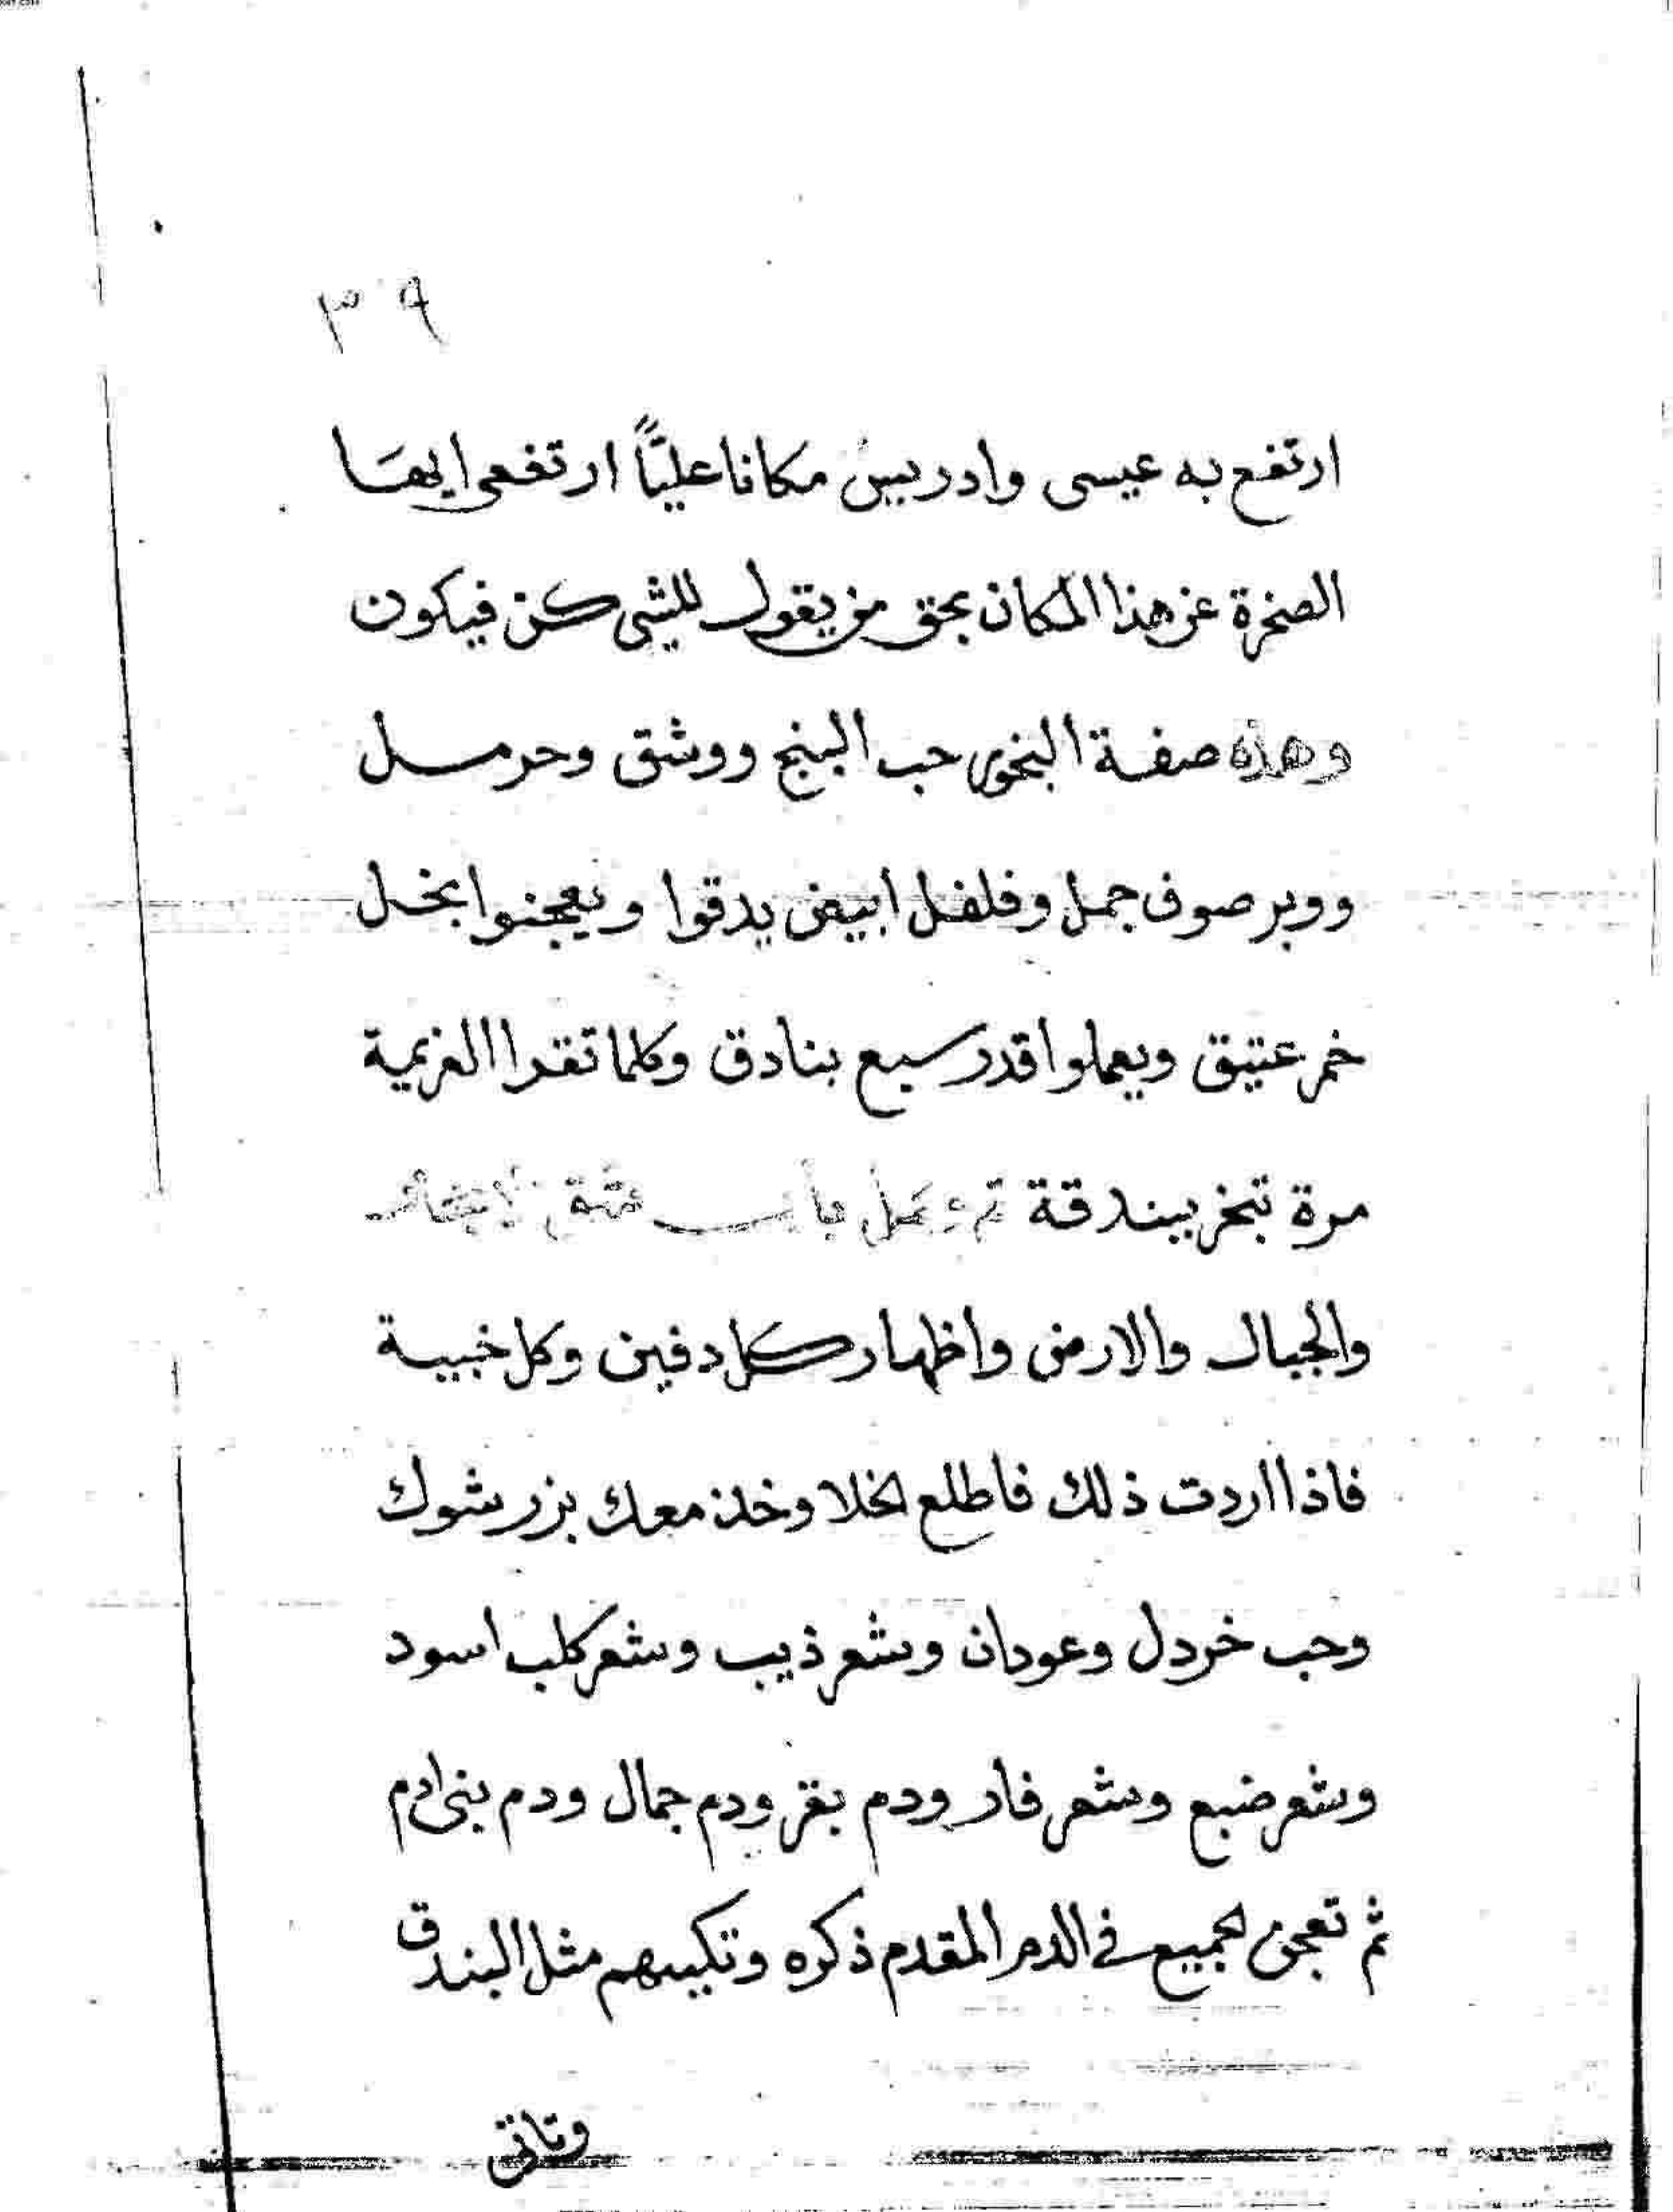 ٣٩
ارتفع به عيسى وادريس مكانا عليًّا ارتفعى ايها
الصخرة عن هذا المكان بحق من يقول للشى كن فيكون
وهذه صفة البخور حب البنج ووشق وحرمل
ووبر صوف جمل وفلفل ابيض يدقوا ويعجنوا بخل
خمر عتيق ويعملوا قدر سبع بنادق وكلما تقرا العزيمة
مرة تبخر ببندقة تم وكمل باب
والجبال والارض واظهار كل دفين وكل خبيبة
فاذا اردت ذلك فاطلع لخلا وخذ معك بزر شوك
وحب خردل وعودان وشعر ذيب وشعر كلب اسود
وشعر ضبع وشعر فار ودم بقر ودم جمال ودم بنى ادم
ثم تعجن لجميع فى الدم المقدم ذكره وتكببهم مثل البندق
وتاتى